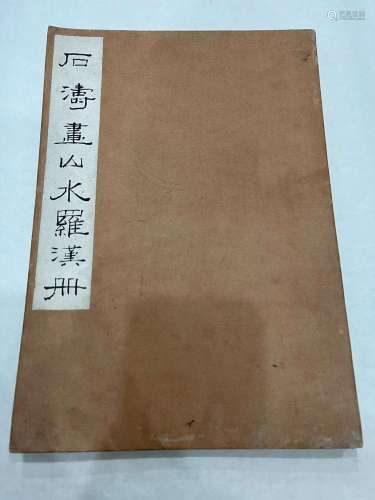 石濤畫山水羅漢册